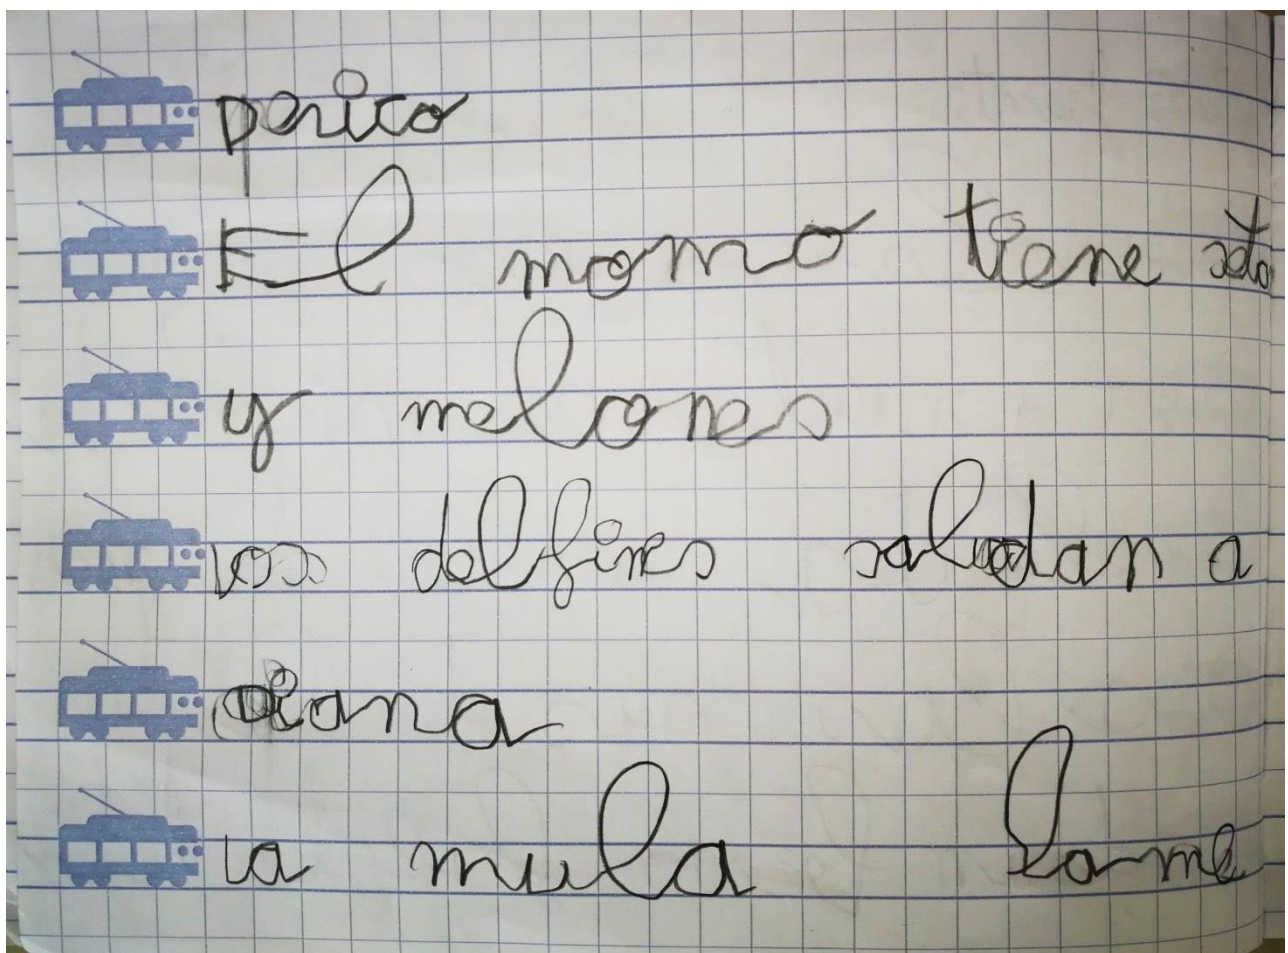 perico
El momo tiene seta
y melones
los delfines saludan a
diana
la mula lame